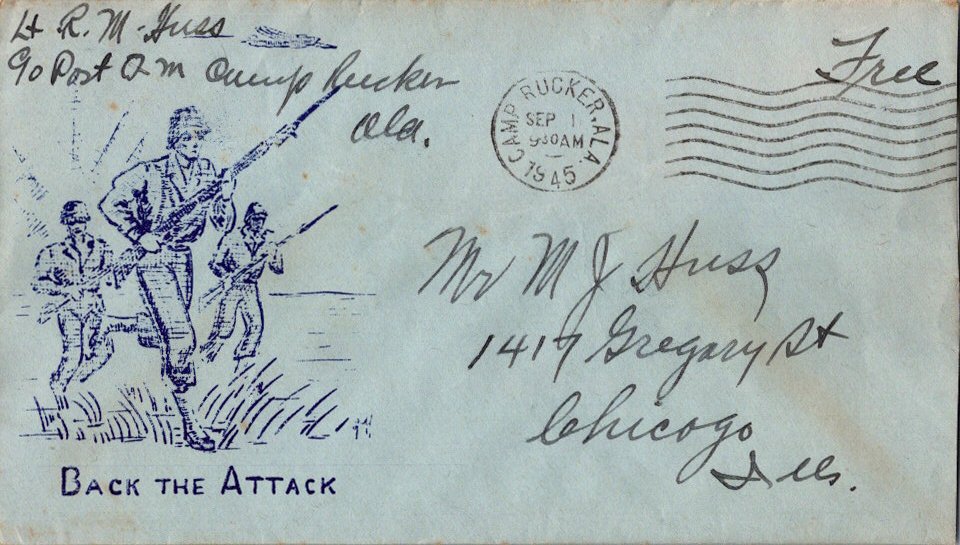 Lt R. M. Huss
c/o Post Q M Camp Rucker
Ala.
Free
CAMP RUCKER, ALA
SEP 1
930AM
1945
Mr M J Huss
1417 Gregory St
Chicago
Ills.
BACK THE ATTACK